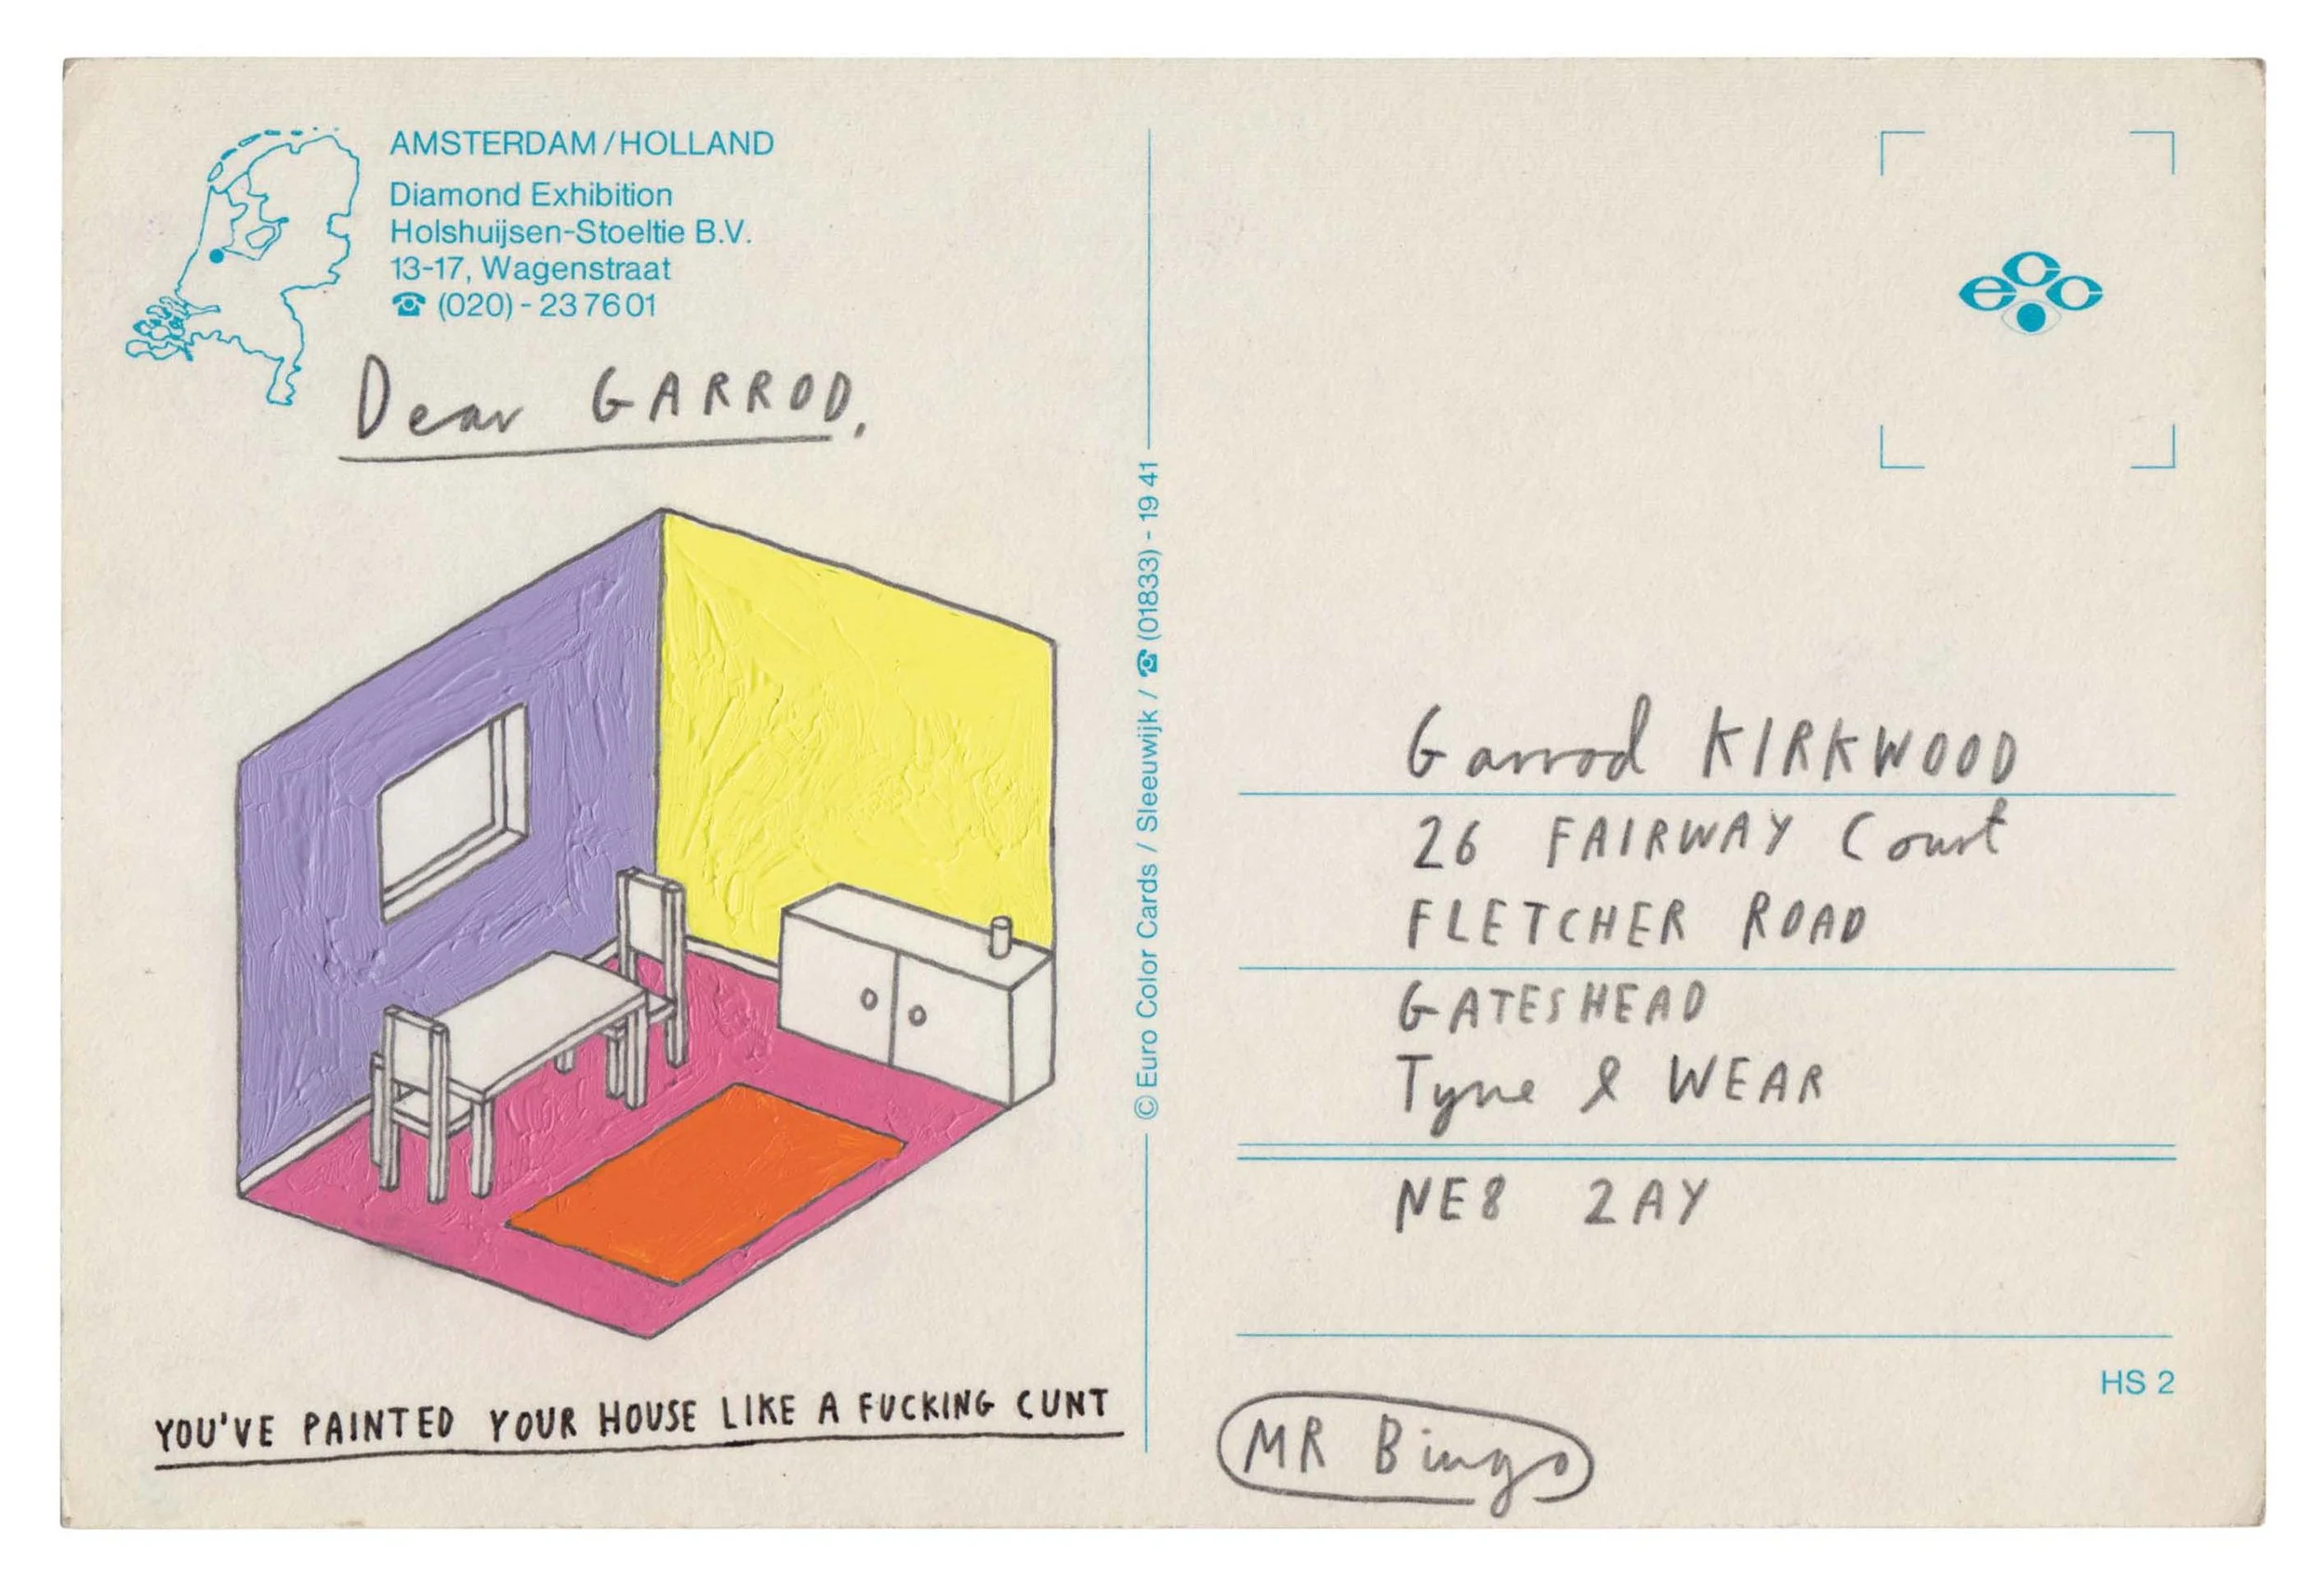 AMSTERDAM/HOLLAND
Diamond Exhibition
Holshuijsen-Stoeltie B.V.
13-17, Wagenstraat
☎ (020) - 237601
Dear GARROD,
YOU'VE PAINTED YOUR HOUSE LIKE A FUCKING CUNT
© Euro Color Cards / Sleeuwijk / ☎ (01833) - 1941
ecc
Garrod KIRKWOOD
26 FAIRWAY Court
FLETCHER ROAD
GATESHEAD
Tyne & WEAR
NE8 2AY
HS 2
MR Bingo